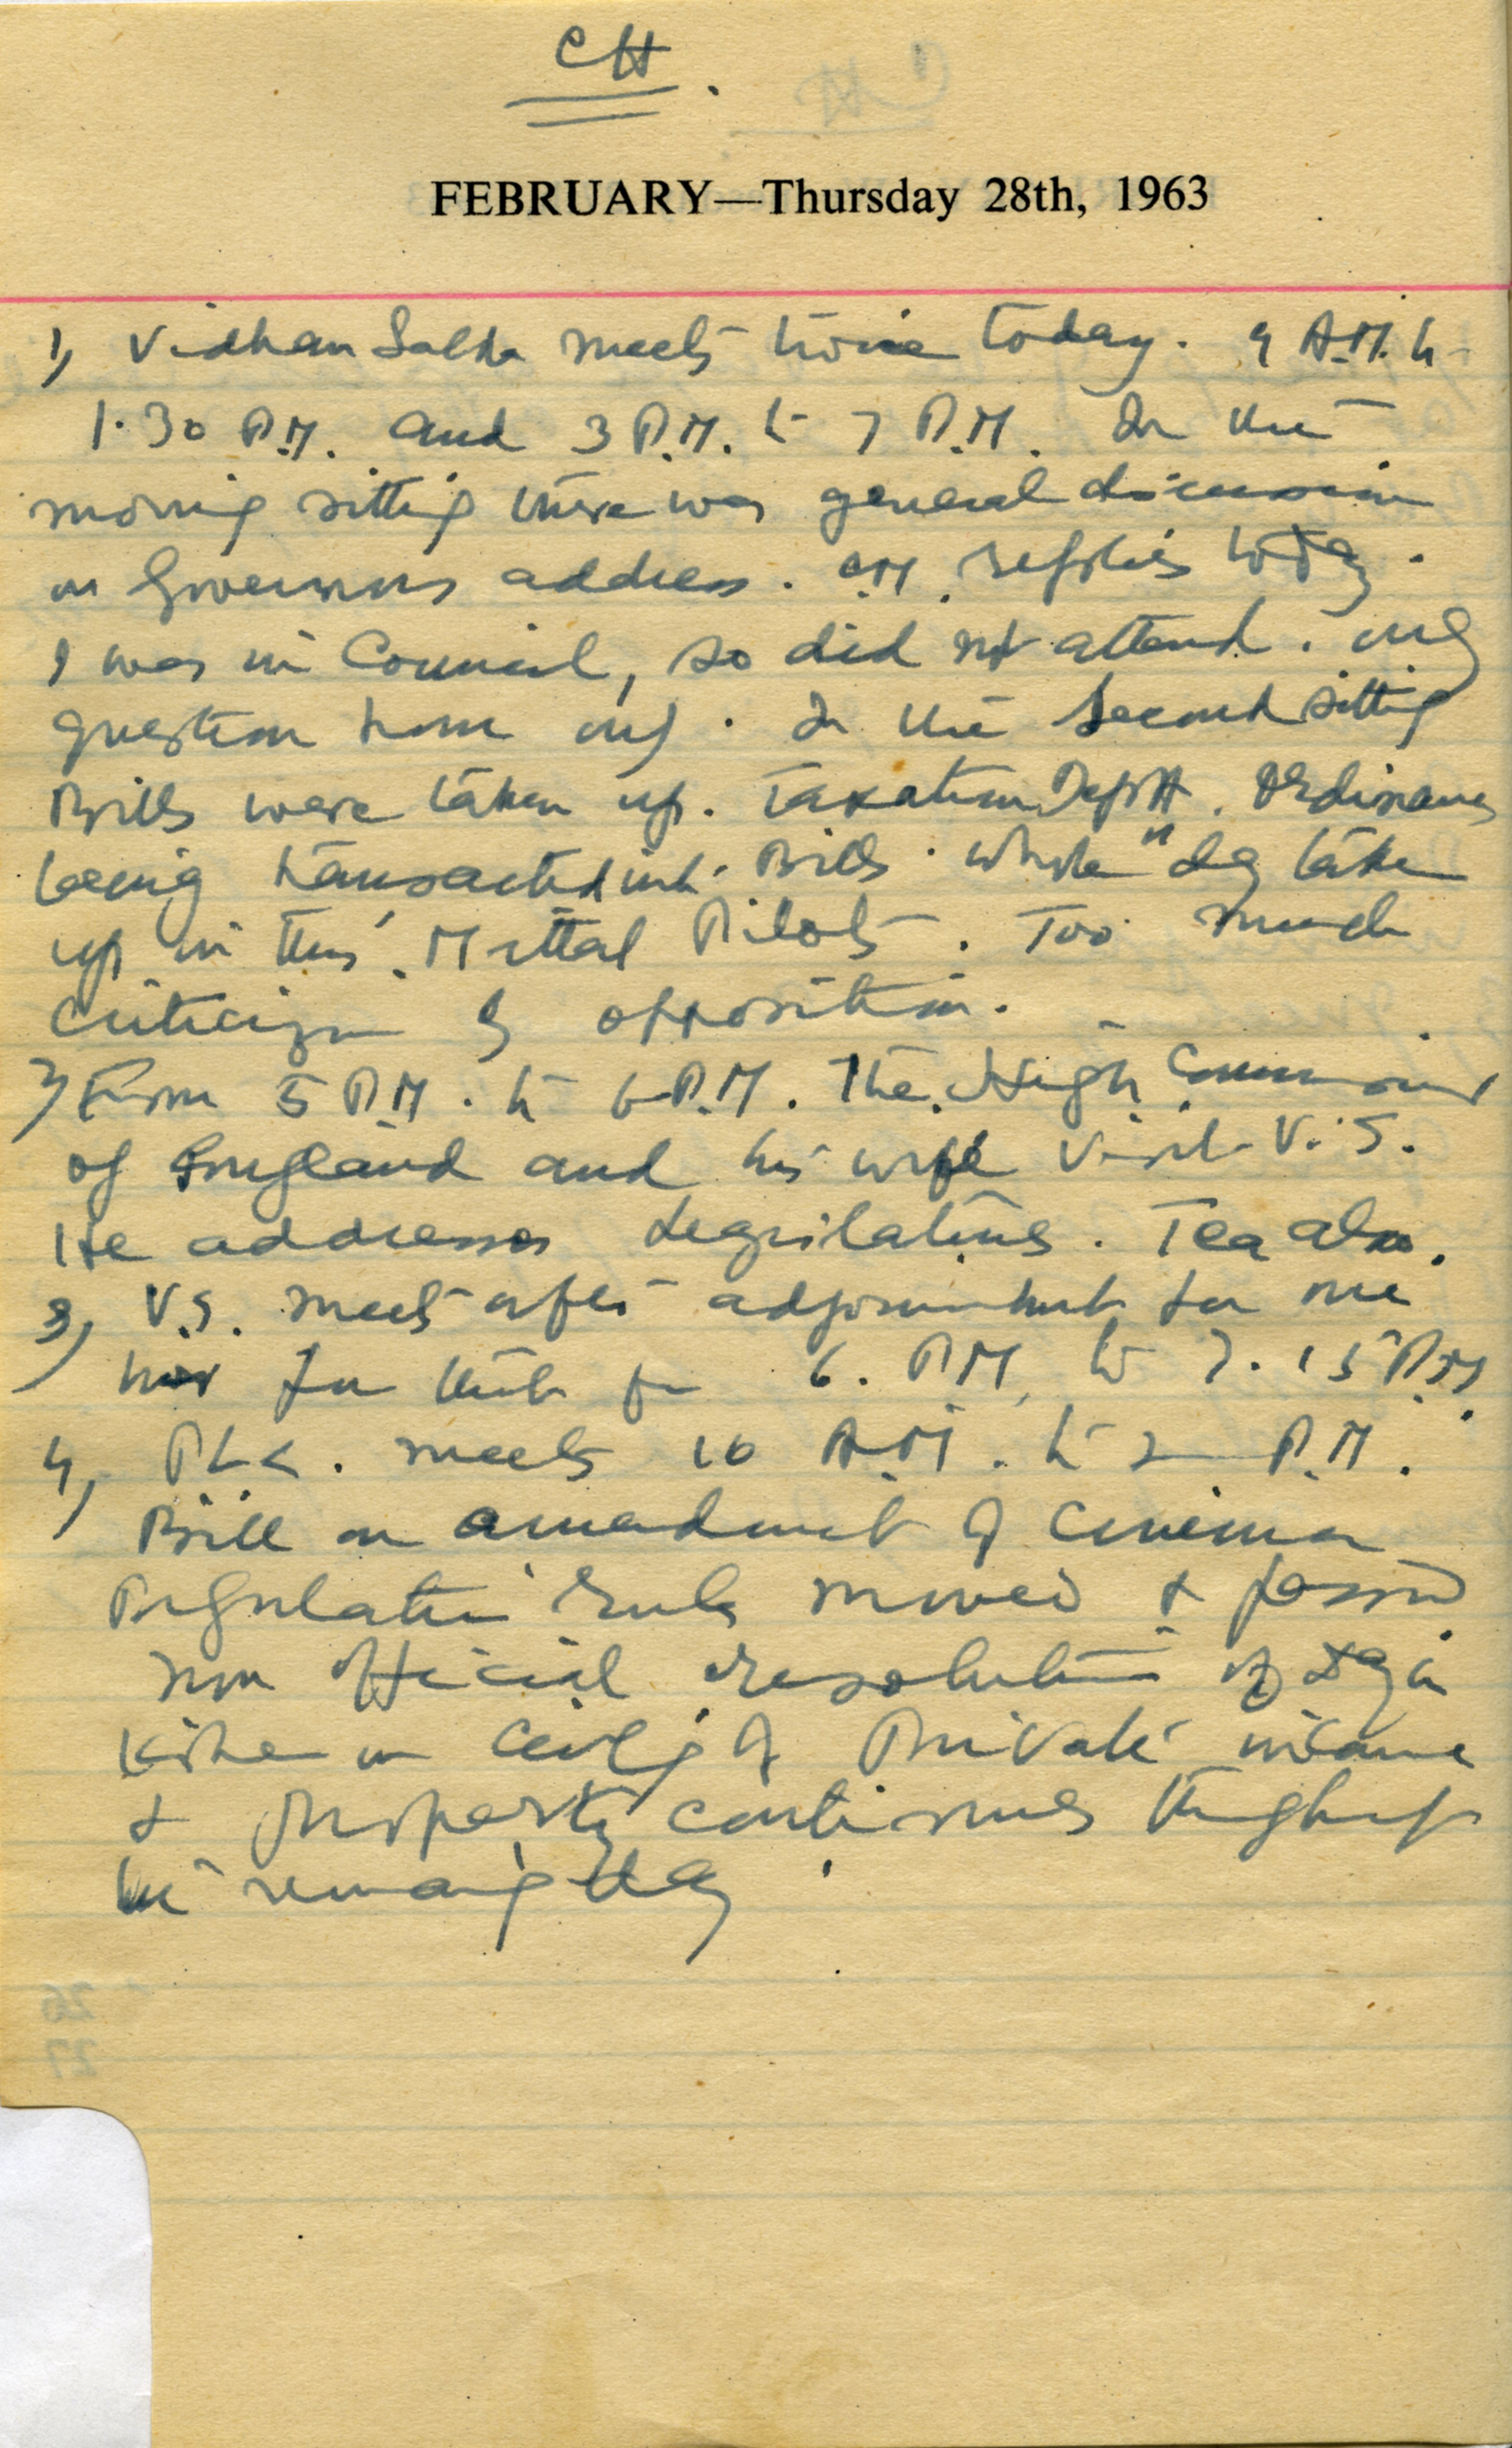 CH.
FEBRUARY—Thursday 28th, 1963
1, Vidhan Sabha meets twice today. 9 A.M. to
1.30 P.M. and 3 P.M. to 7 P.M. In the
morning sitting there was general discussion
on Governors address. CM. replies today.
I was in Council, so did not attend. My
question hour only. In the second sitting
Bills were taken up. Taxation Deptt. Ordinances
being transacted into Bills. Whole day take
up in this. Mittal Pilots. Too much
criticizm by opposition.
2) From 5 P.M. to 6 P.M. The High Commissioner
of England and his wife visit V.S.
He addresses Legislatures. Tea also.
3, V.S. meets after adjournment for one
hour for this from 6. P.M. to 7.15 P.M.
4, meets 10 A.M. to 2 P.M.
Bill on amendment of Cinema
Regulation rules moved & passed
non official resolution of
on ceiling of Private income
& Property continues
the remaining day.